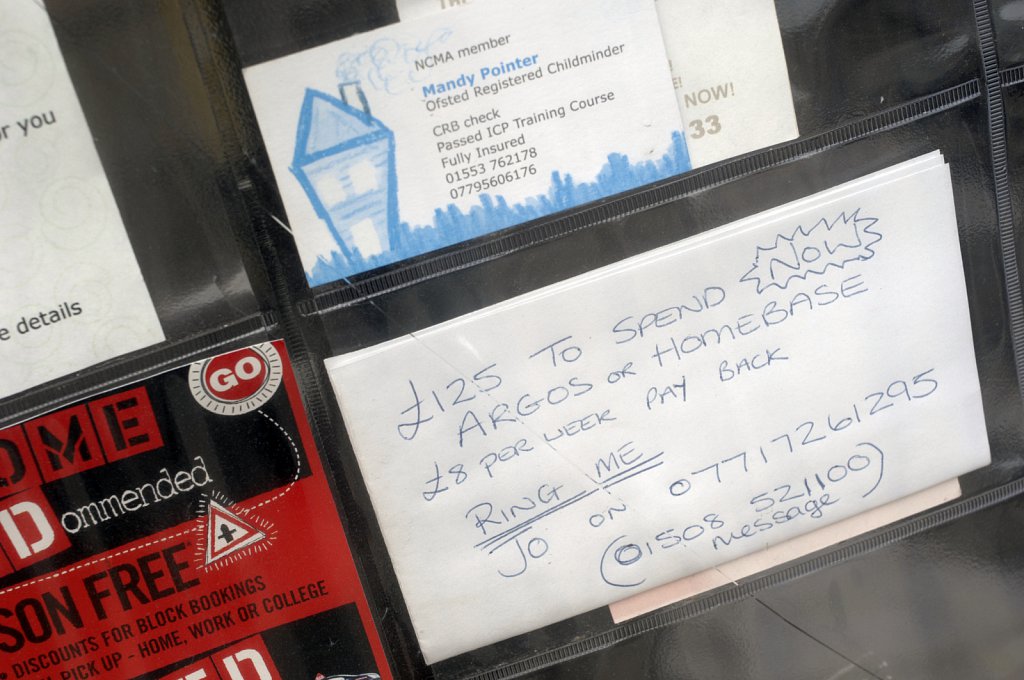 or you
details
NCMA member
Mandy Pointer
Ofsted Registered Childminder
CRB check
Passed ICP Training Course
Fully Insured
01553 762178
07795606176
NOW!
33
£125 TO SPEND NOW
ARGOS OR HOMEBASE
£8 PER WEEK PAY BACK
RING ME
JO ON 07717261295
(01508 521100)
message
GO
OME
D ommended
SON FREE
• DISCOUNTS FOR BLOCK BOOKINGS
PICK UP - HOME, WORK OR COLLEGE